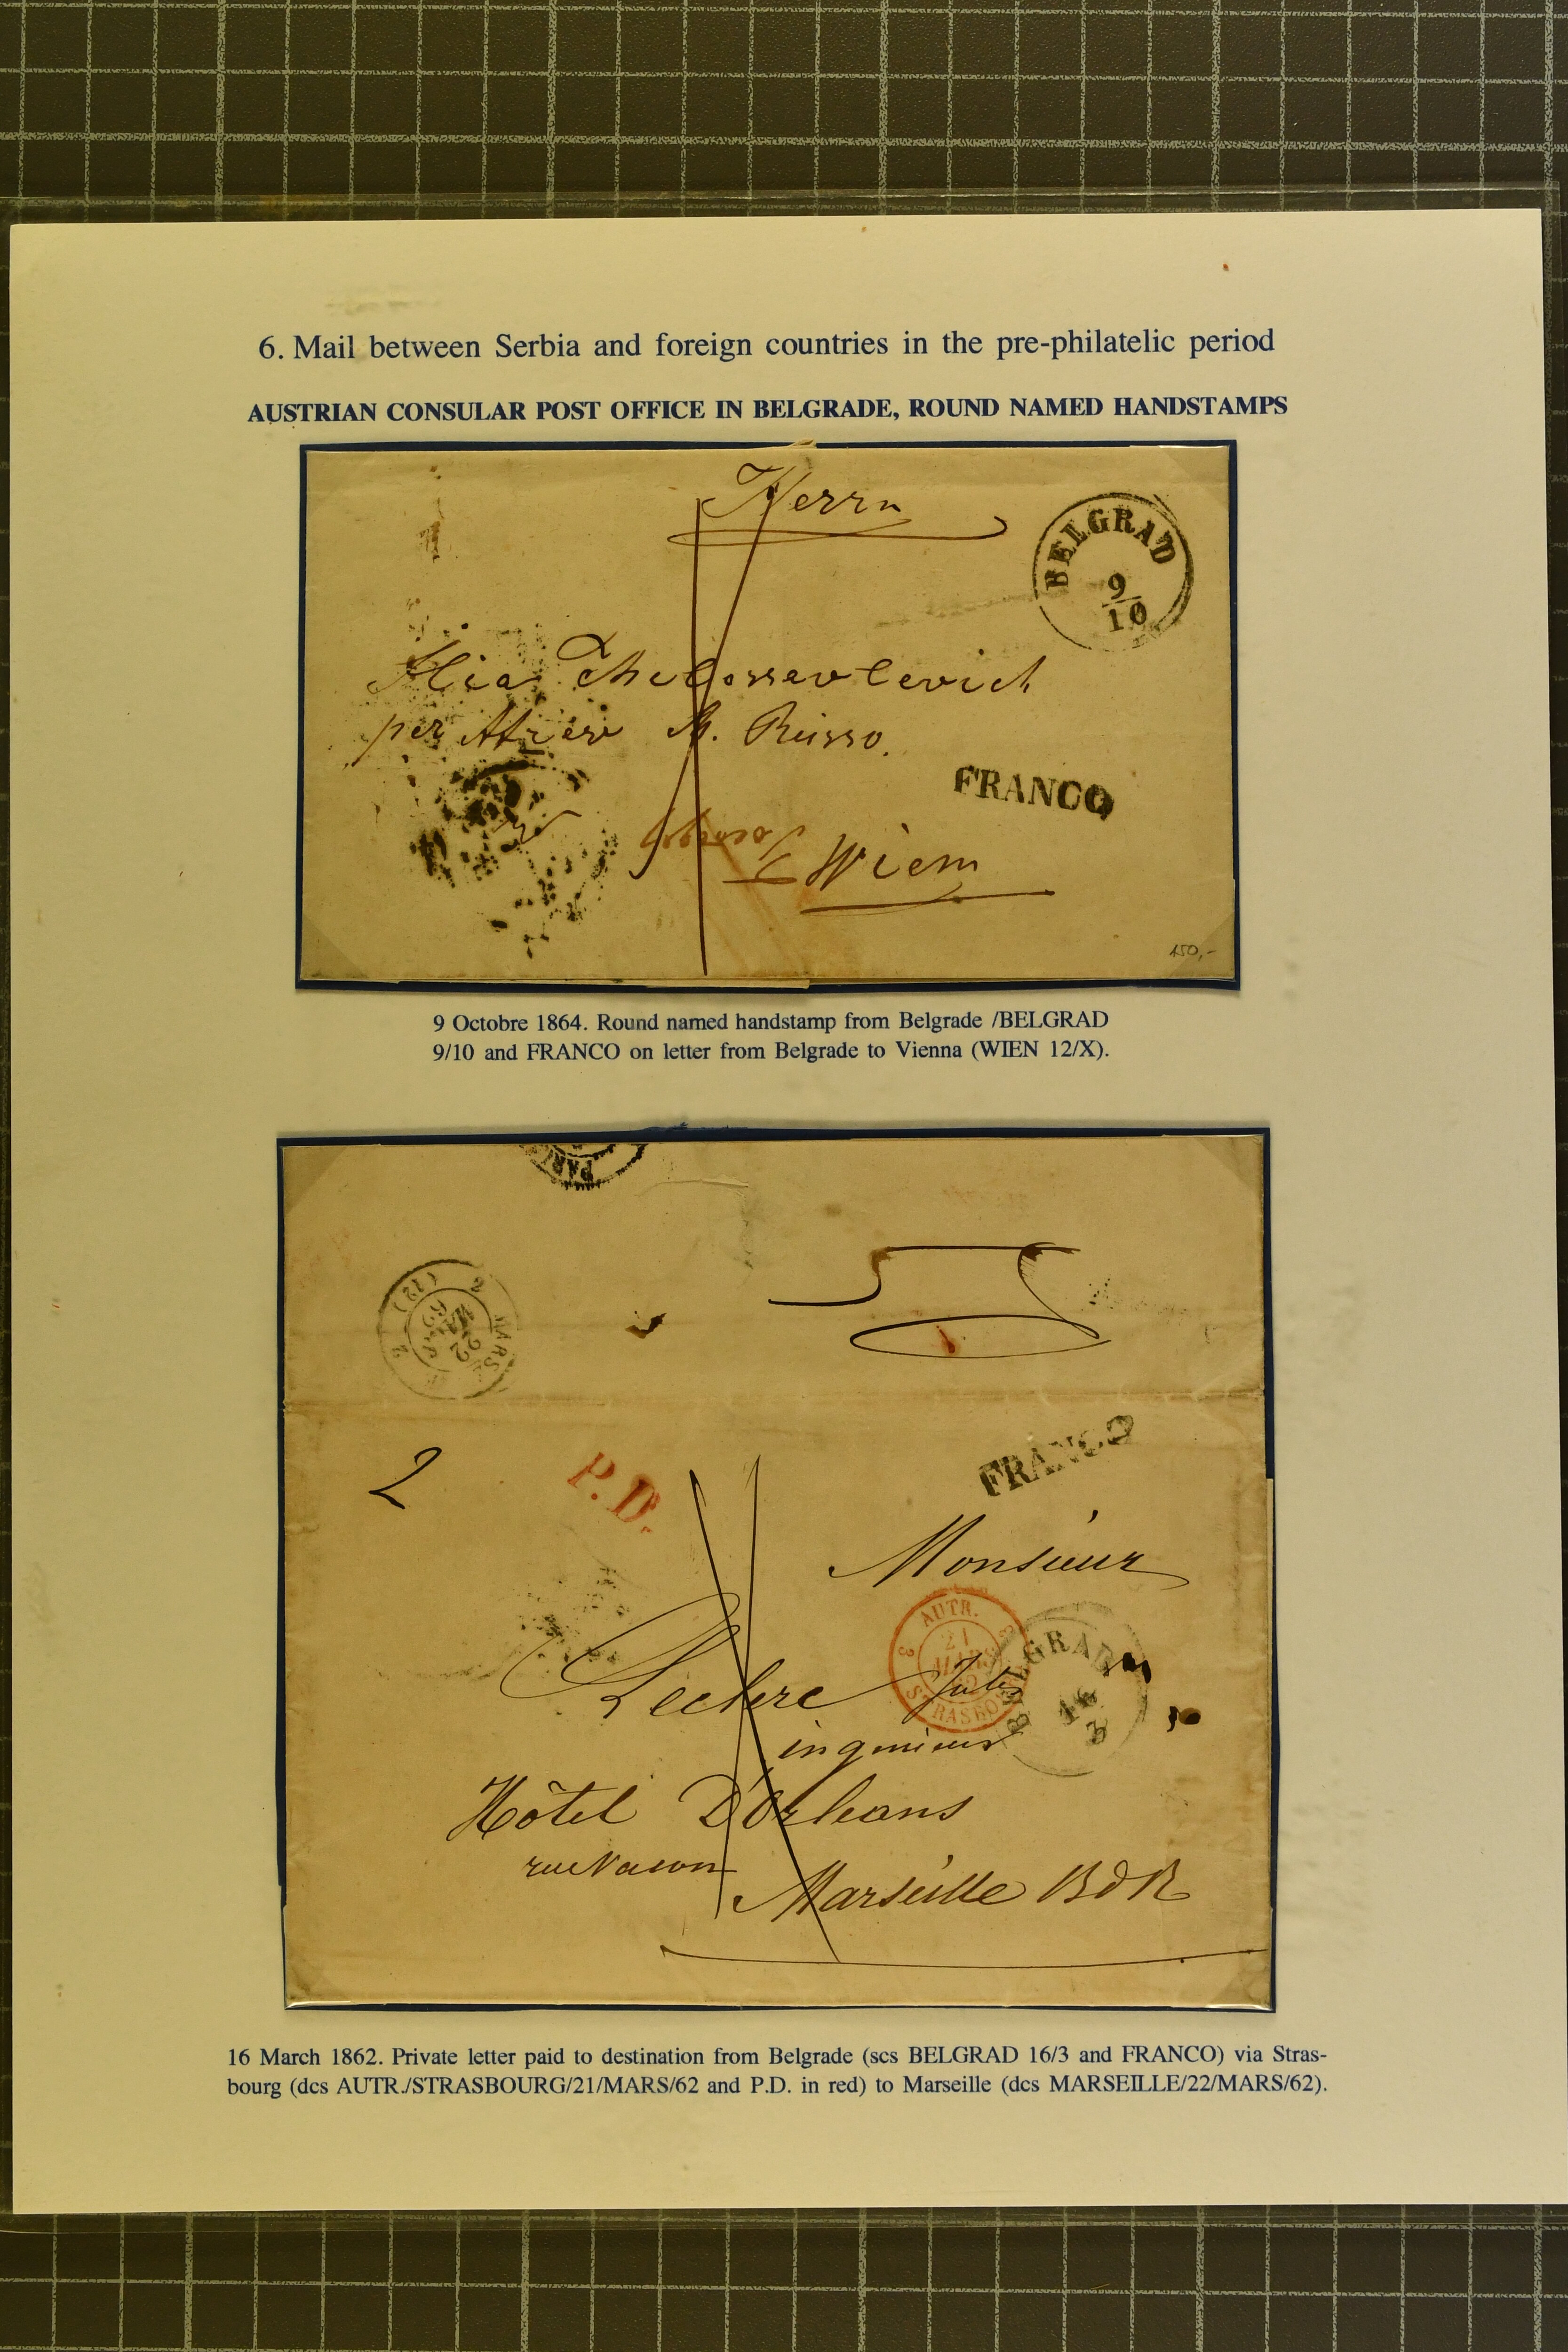 6. Mail between Serbia and foreign countries in the pre-philatelic period
AUSTRIAN CONSULAR POST OFFICE IN BELGRADE, ROUND NAMED HANDSTAMPS
Herrn
BELGRAD
9/10
Ilia
per A. Russo.
FRANCO
Wien
150,-
9 Octobre 1864. Round named handstamp from Belgrade /BELGRAD
9/10 and FRANCO on letter from Belgrade to Vienna (WIEN 12/X).
MARSE
22
62
2
P.D.
FRANCO
Monsieur
AUTR.
21
MARS
STRASBO
BELGRAD
16
3
Leclerc Jules
ingenieur
Hôtel D'Orleans
rue
Marseille BdR
16 March 1862. Private letter paid to destination from Belgrade (scs BELGRAD 16/3 and FRANCO) via Stras-
bourg (dcs AUTR./STRASBOURG/21/MARS/62 and P.D. in red) to Marseille (dcs MARSEILLE/22/MARS/62).